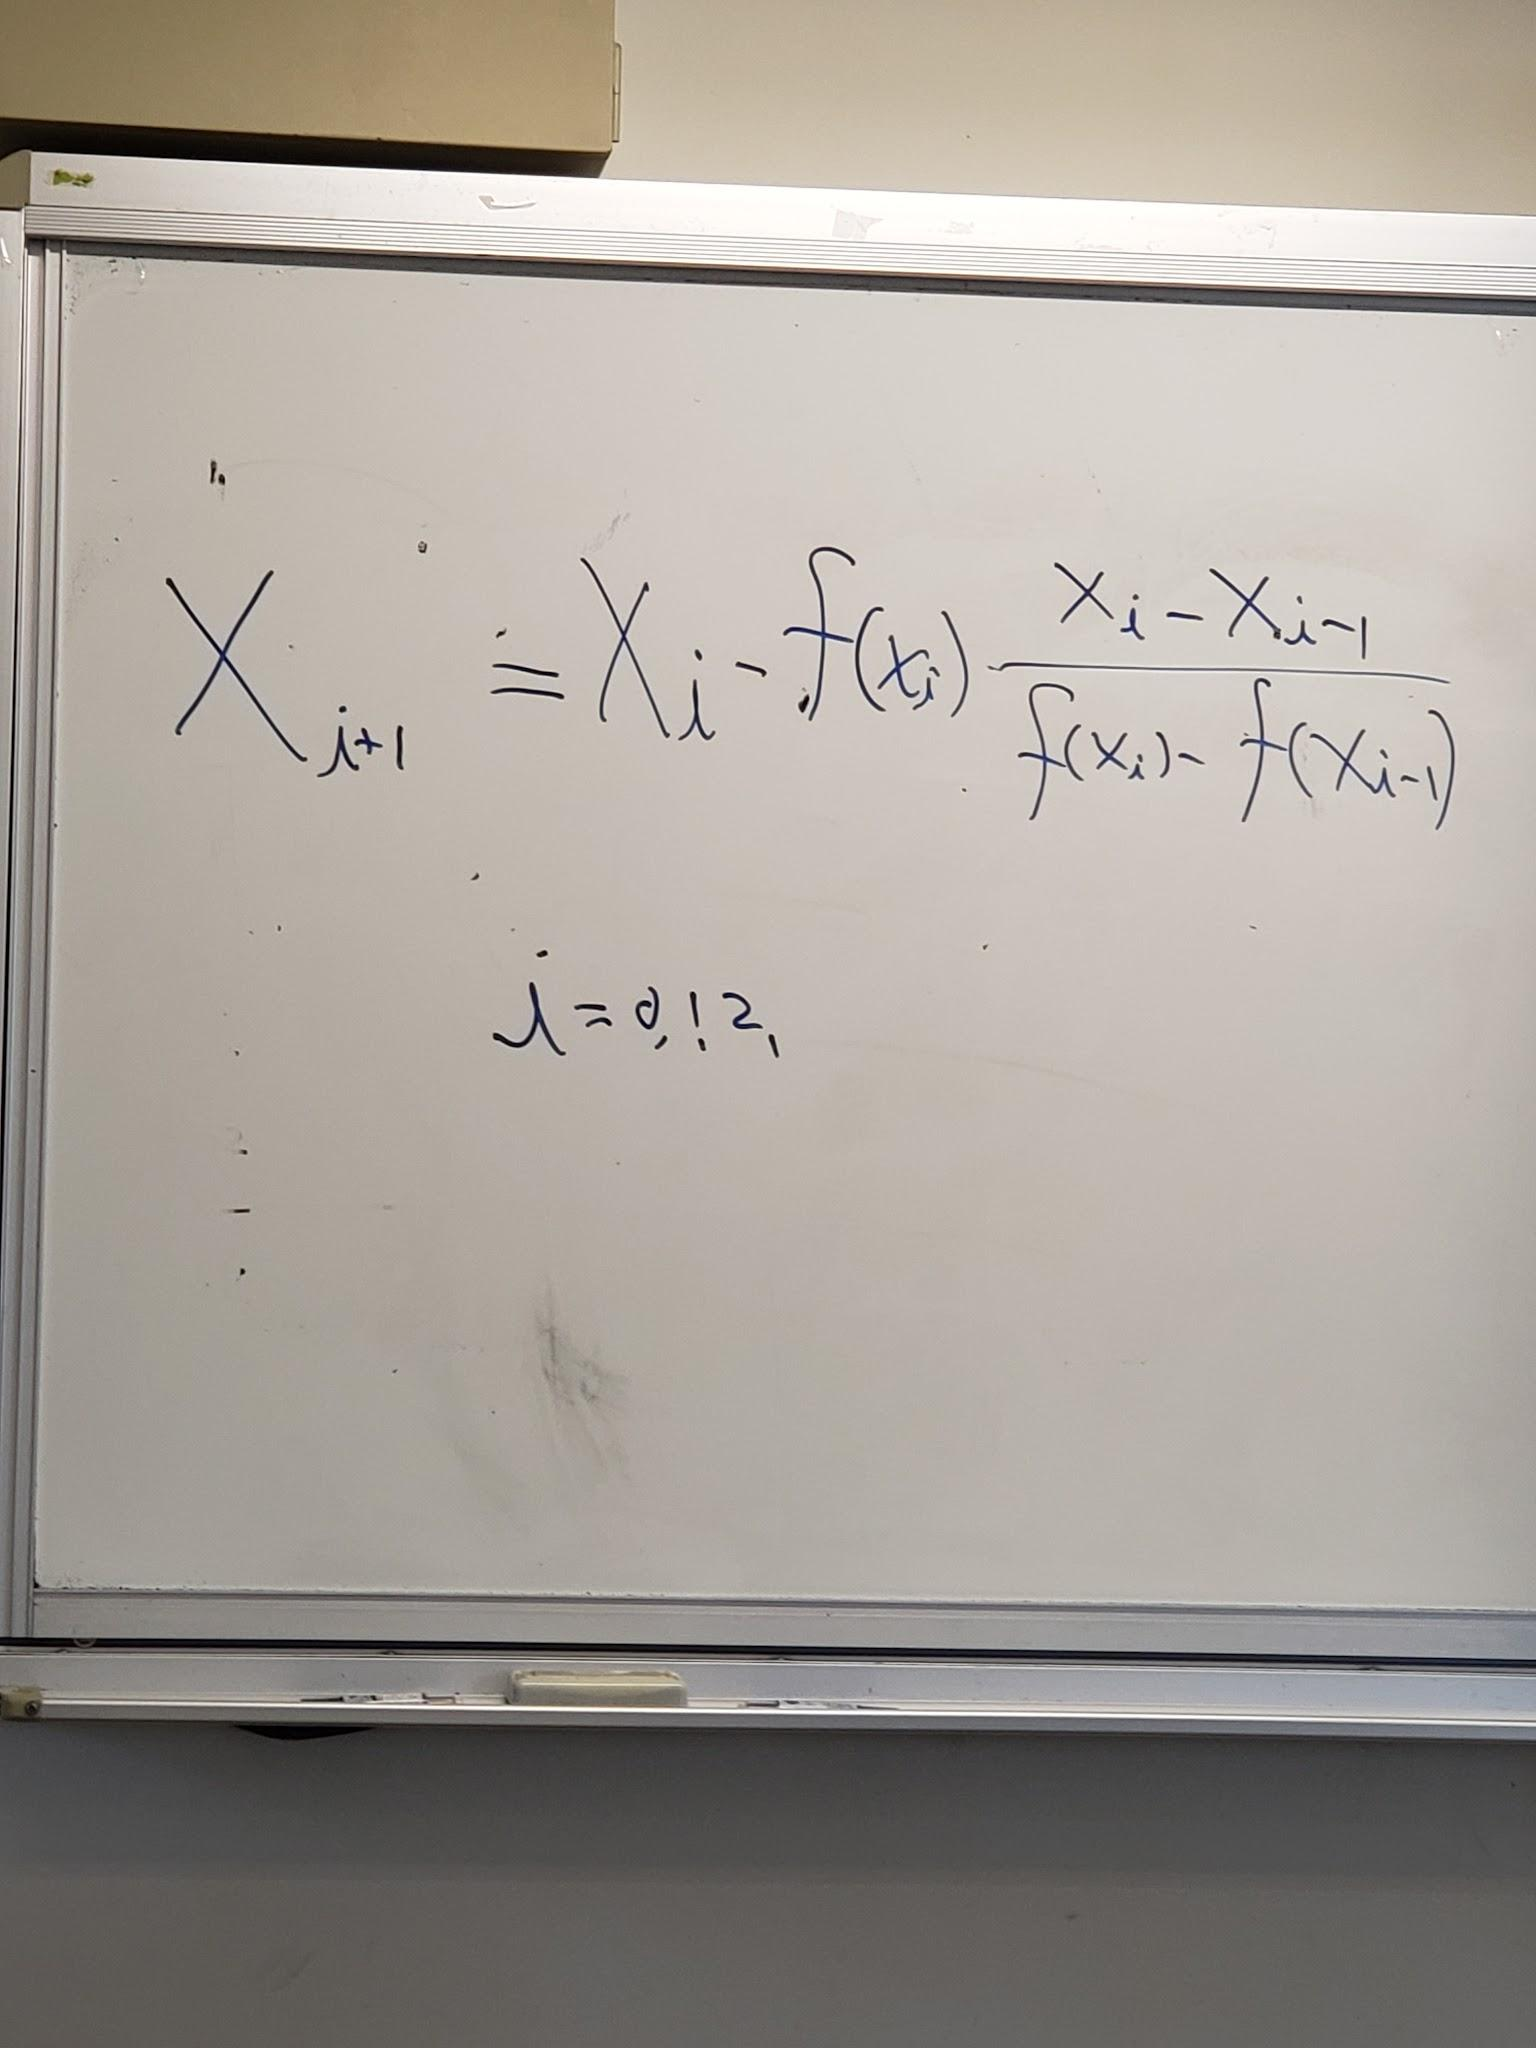 X_{i+1} = X_i - f(x_i) \frac{x_i - x_{i-1}}{f(x_i) - f(x_{i-1})}
i = 0, 1, 2,